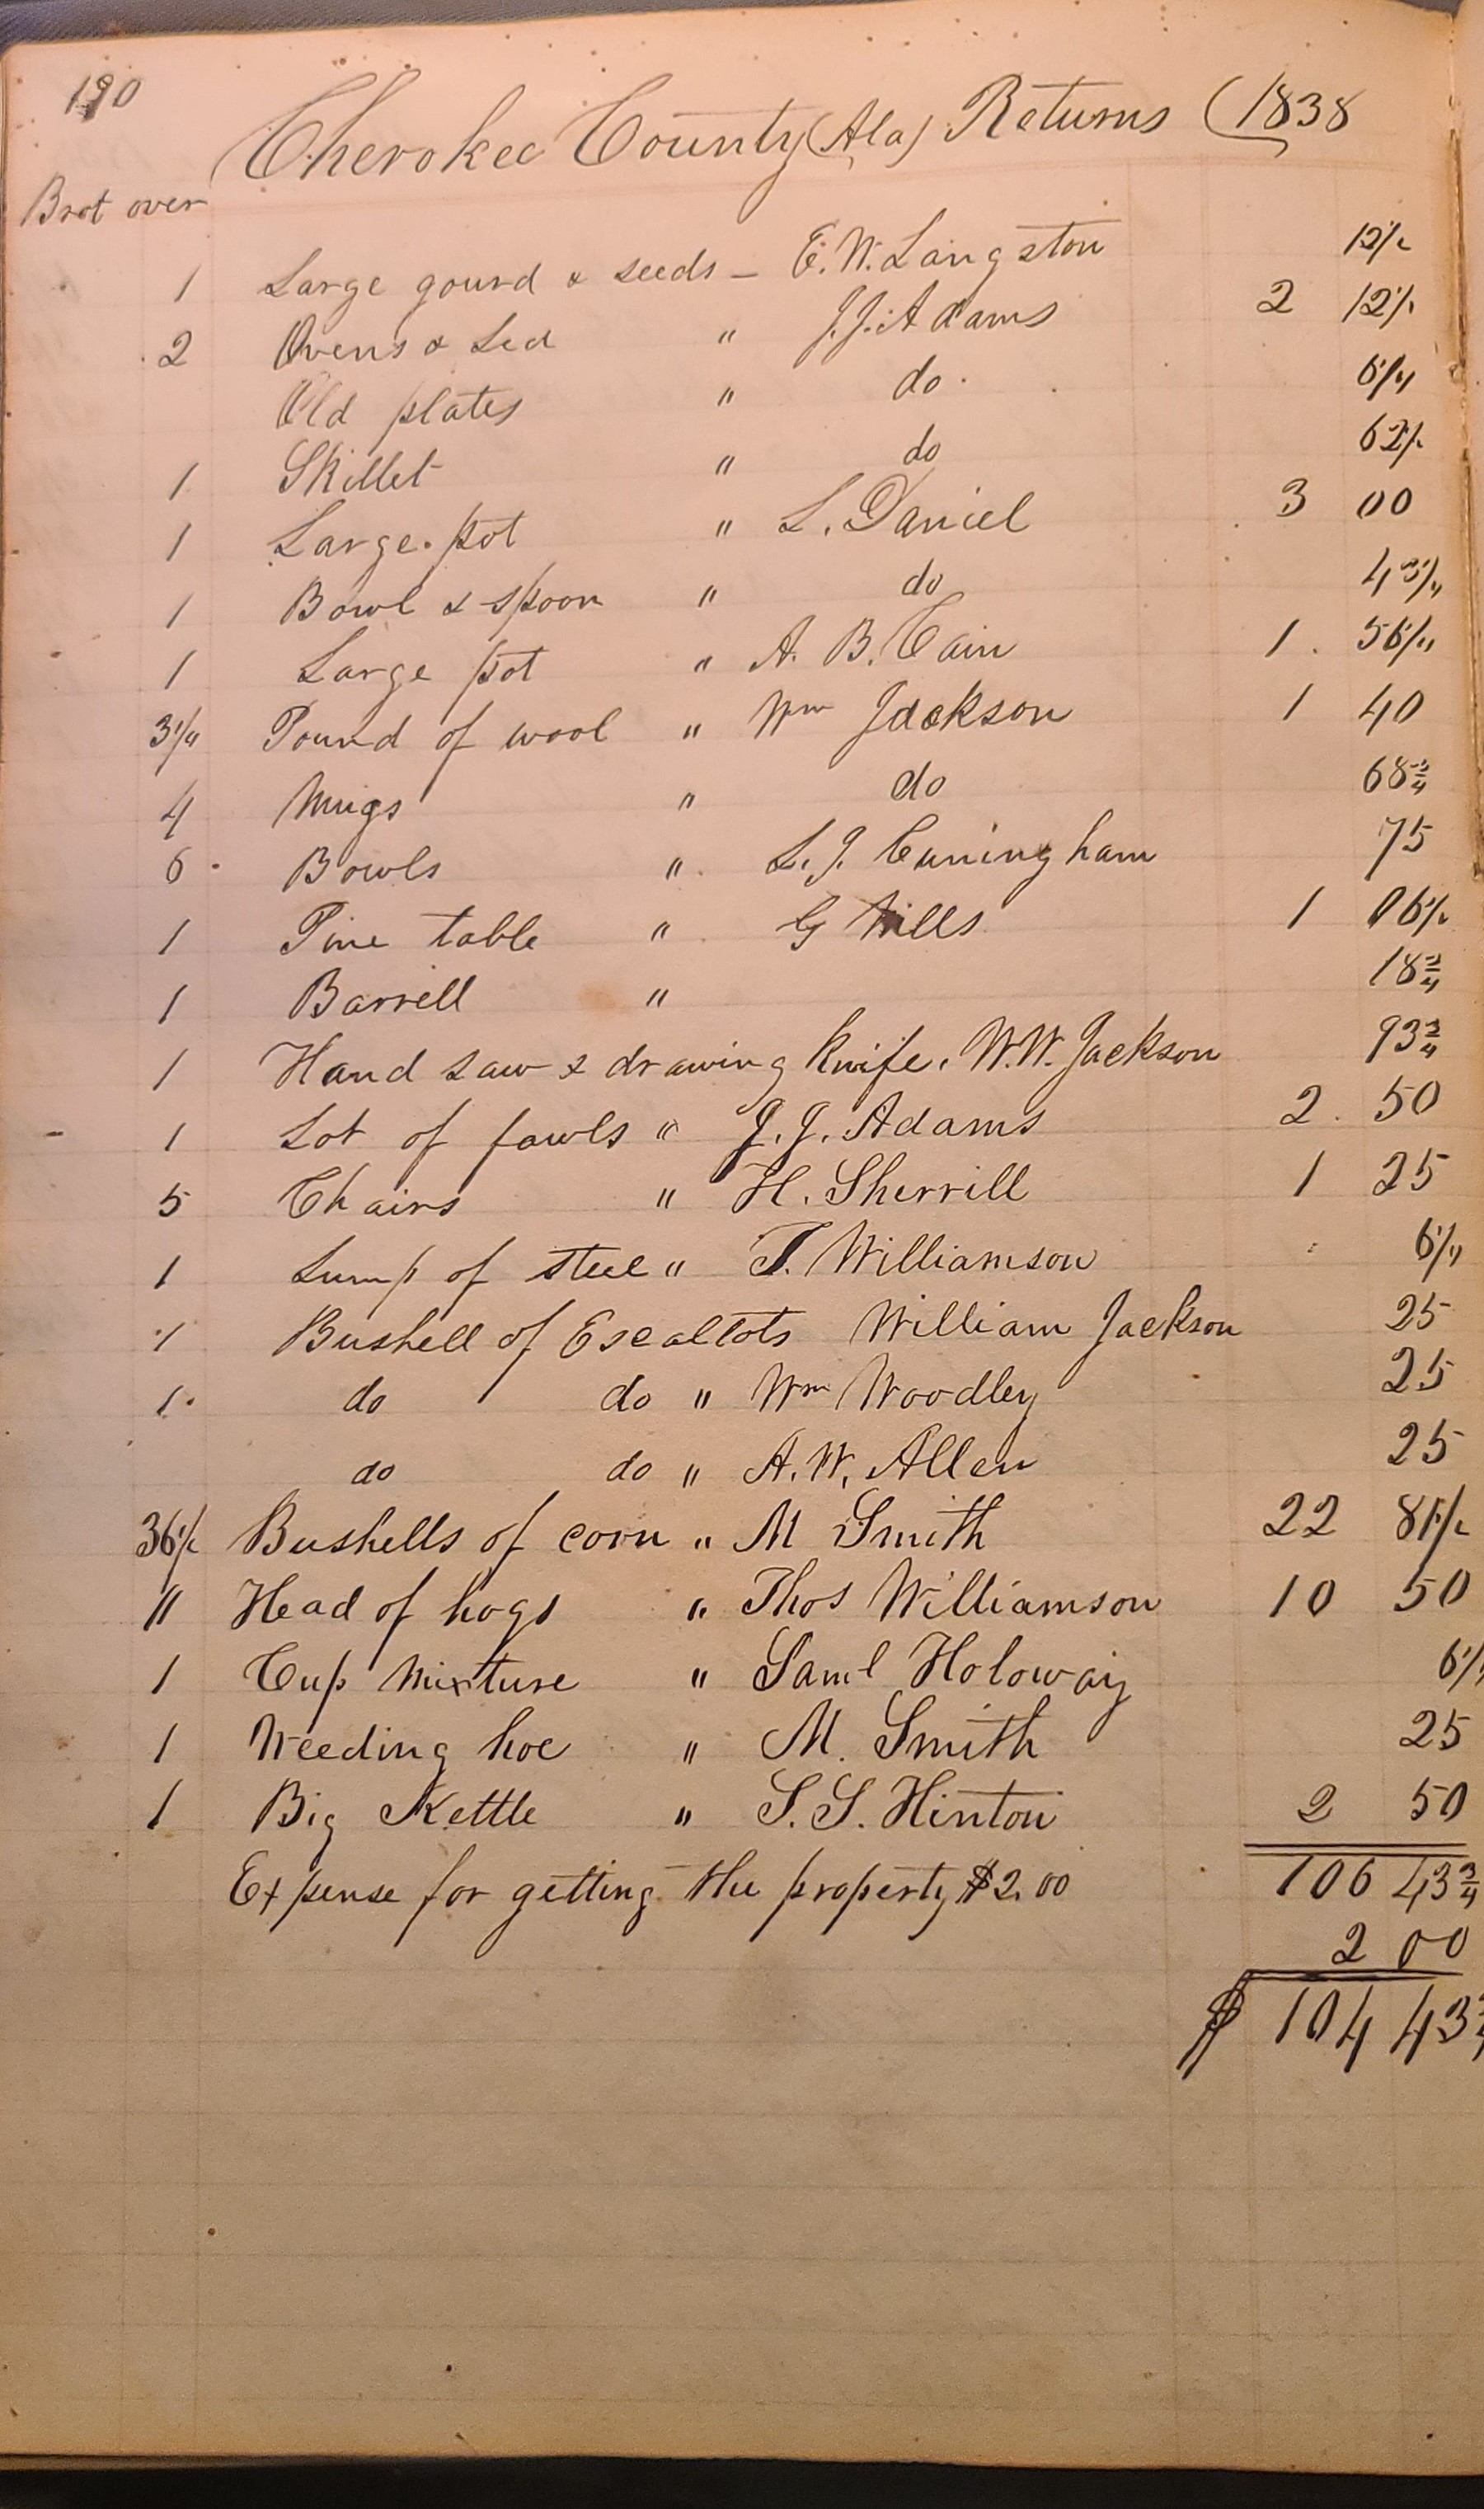 190
Cherokee County (Ala) Returns (1838
Brot over
1 Large gourd & seeds - E. W. Langston 12½
2 Ovens & Led " J. J. Adams 2 12½
Old plates " do 6¼
1 Skillet " do 62½
1 Large pot " L. Daniel 3 00
1 Bowl & spoon " do 43¾
1 Large pot " A. B. Cain 1 56¼
3¼ Pound of wool " Wm Jackson 1 40
4 Mugs " do 68¾
6 Bowls " L. J. Cuningham 75
1 Pine table " G Mills 1 06½
1 Barrell " 18¾
1 Hand saw & drawing knife. W. W. Jackson 93¾
1 Lot of fowls " J. J. Adams 2 50
5 Chairs " H. Sherrill 1 25
1 Lump of steel " T. Williamson 6¼
1 Bushell of Escallots William Jackson 25
1 do do " Wm Woodley 25
do do " A. W. Allen 25
36½ Bushells of corn " M Smith 22 81½
11 Head of hogs " Thos Williamson 10 50
1 Cup Mixture " Saml Holoway 6¼
1 Weeding hoe " M. Smith 25
1 Big Kettle " S. S. Hinton 2 50
106 43¾
Expense for getting the property $2.00
2 00
$ 104 43¾